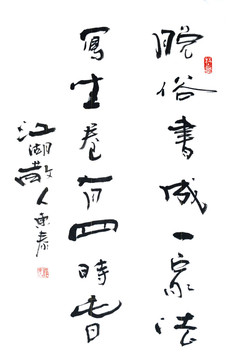 脱俗書成一家法
寫生卷有四時春
江湖散人